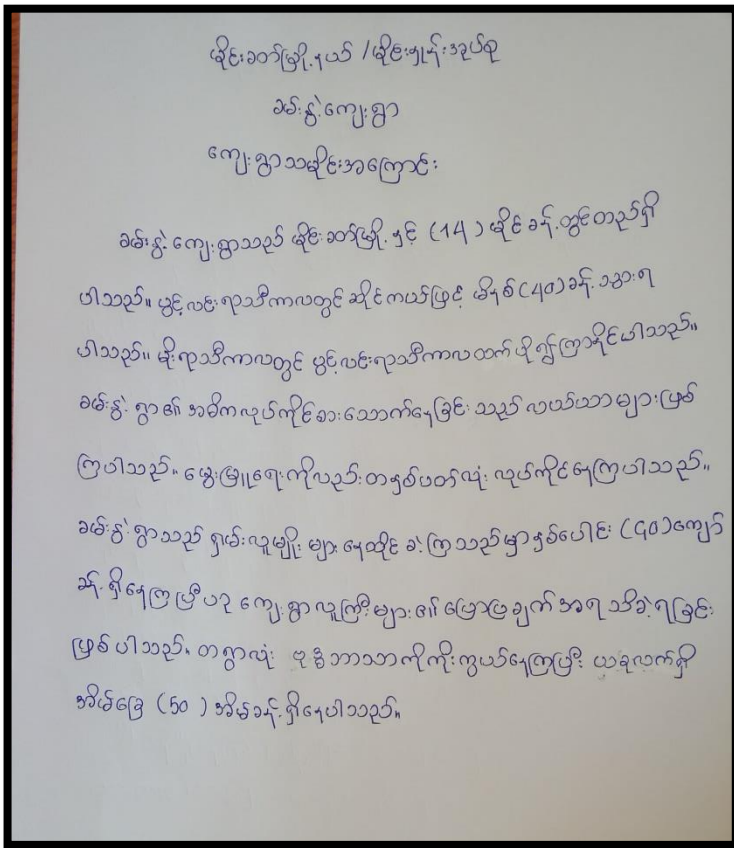 မိုင်းခတ်မြို့နယ် /မိုင်းဟွန်းအုပ်စု
ခမ်းနွဲ့ကျေးရွာ
ကျေးရွာသမိုင်းအကြောင်း
ခမ်းနွဲ့ ကျေးရွာသည် မိုင်းခတ်မြို့နှင့် (14) မိုင်ခန့်တွင်တည်ရှိ
ပါသည်။ ပွင့်လင်းရာသီကာလတွင်ဆိုင်ကယ်ဖြင့် မိနစ်(40)ခန့် သွားရ
ပါသည်။ မိုးရာသီကာလတွင် ပွင့်လင်းရာသီကာလထက်ပို၍ကြာနိုင်ပါသည်။
ခမ်းနွဲ့ ရွာ၏ အဓိကလုပ်ကိုင်စားသောက်နေခြင်း သည် လယ်ယာများဖြစ်
ကြပါသည်။ မွေးမြူရေးကိုလည်းတနှစ်ပတ်လုံး လုပ်ကိုင်နေကြပါသည်။
ခမ်းနွဲ့ရွာသည် ရှမ်းလူမျိုး များ နေထိုင် ခဲ့ကြသည်မှာနှစ်ပေါင်း (90)ကျော်
ခန့် ရှိနေကြပြီဟု ကျေးရွာလူကြီးများ၏ ပြောပြချက် အရ သိခဲ့ရခြင်း
ဖြစ်ပါသည်။ တရွာလုံး ဗုဒ္ဓဘာသာကိုကိုးကွယ်နေကြပြီး ယခုလက်ရှိ
အိမ်ခြေ (50 ) အိမ်ခန့် ရှိနေပါသည်။